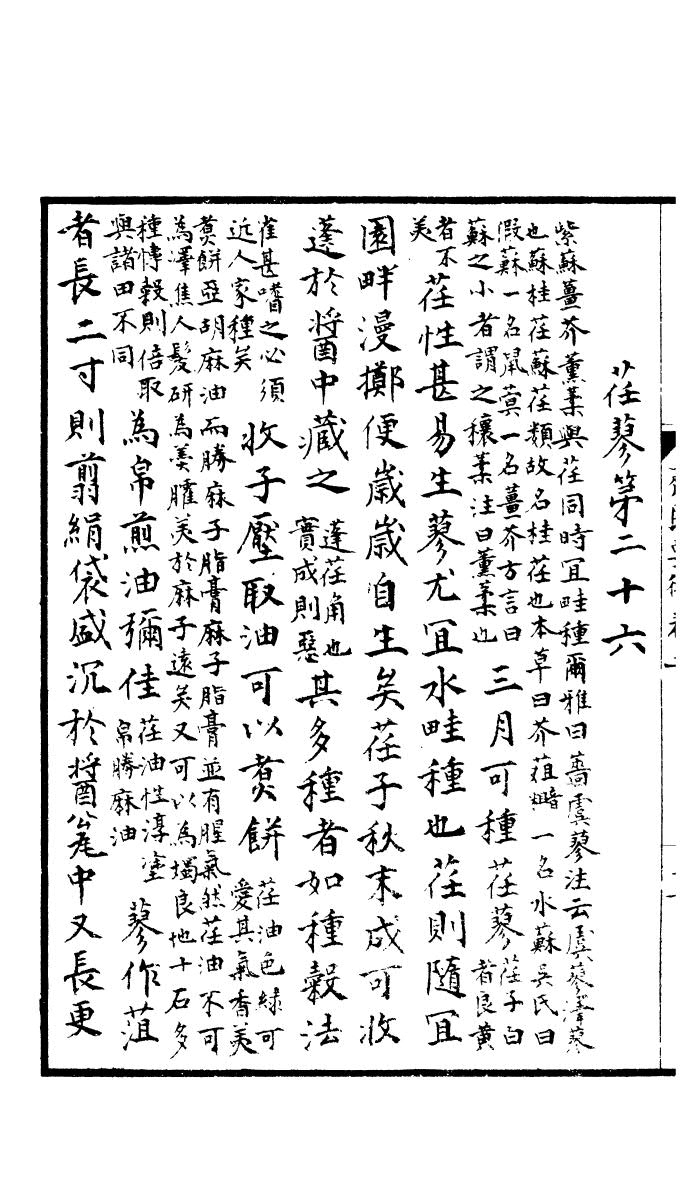 荏蓼第二十六
紫蘇薑芥薰葇與荏同時宜畦種爾雅曰薔虞蓼注云虞蓼澤蓼
也蘇桂荏蘇荏類故名桂荏也本草曰芥葅一名水蘇吳氏曰
假蘇一名鼠蓂一名薑芥方言曰
蘇之小者謂之穰葇注曰薰葇也
三月可種荏蓼
荏子白
者良黃
者不
美
荏性甚易生蓼尤宜水畦種也荏則隨宜
園畔漫擲便歲歲自生矣荏子秋末成可收
蓬於醬中藏之
蓬荏角也
實成則惡
其多種者如種穀法
雀甚嗜之必須
近人家種矣
收子壓取油可以煑餅
荏油色緑可
愛其氣香美
煑餅亞胡麻油而勝麻子脂膏麻子脂膏並有腥氣然荏油不可
為澤焦人髮研為羹臛美於麻子遠矣又可以為燭良地十石多
種愽穀則倍取
與諸田不同
為帛煎油彌佳
荏油性淳塗
帛勝麻油
蓼作葅
者長二寸則翦絹袋盛沉於醬瓮中又長更